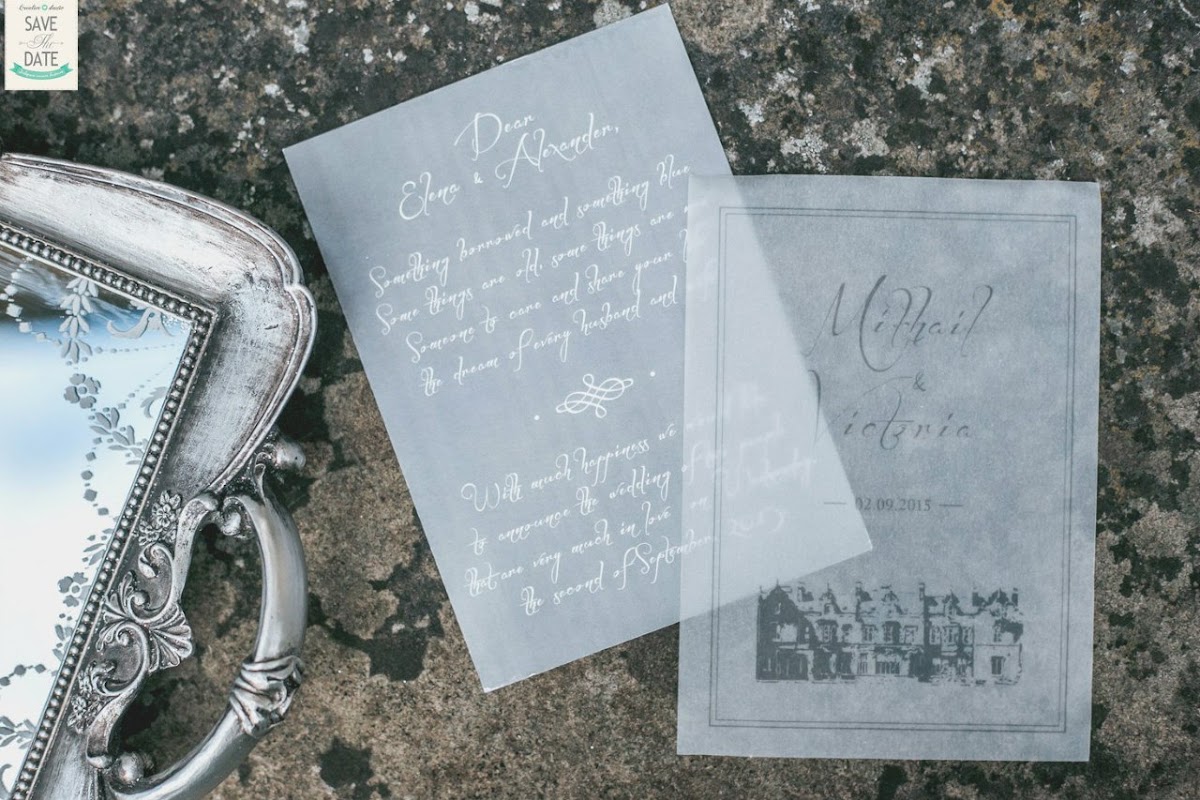 SAVE
The
DATE
Dear
Elena & Alexander,
Something borrowed and something blue
Some things are old, some things are
Someone to care and share your
the dream of every husband and
With much happiness we would like
to announce the wedding of
that are very much in love on
the second of September, 2015
Mikhail
&
Victoria
02.09.2015